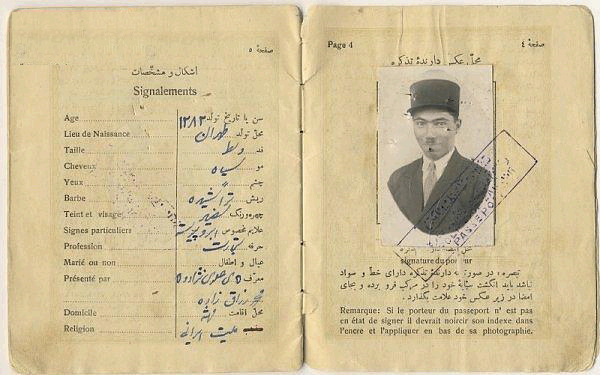 صفحهٔ ٥
اشکال و مشخّصات
Signalements
Age سن یا تاریخ تولد ١٢٨٢
Lieu de Naissance محلّ تولد طهران
Taille قد وسط
Cheveux مو سیاه
Yeux چشم
Barbe ریش تراشیده
Teint et visage چهره ورنگ
Signes particuliers علایم مخصوص ابرو پیوسته
Profession حرفه تجارت
Marié ou non عیال و اطفال
Présenté par معرّف
Domicile محلّ اقامت
Religion ملیت ایرانی
Page 4 صفحهٔ ٤
محلّ عکس دارندهٔ تذکره
PASSEPOR
signature du porteur
تبصره، در صورتیکه دارندهٔ تذکره دارای خطّ و سواد
نباشد باید انگشت سبّابهٔ خود را در مرکب فرو برده و بجای
امضا در زیر عکس خود علامت بگذارد .
Remarque: Si le porteur du passeport n' est pas
en état de signer il devrait noircir son indexe dans
l'encre et l'appliquer en bas de sa photographie.